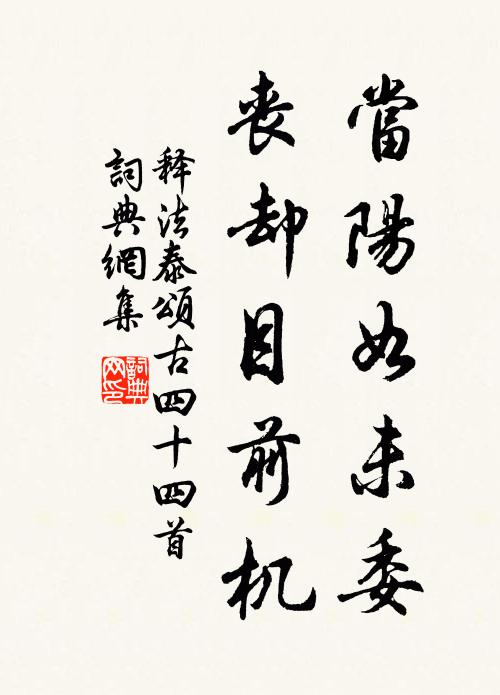 當陽如未委
喪却目前机
释法泰頌古四十四首
詞典網集
詞典網印